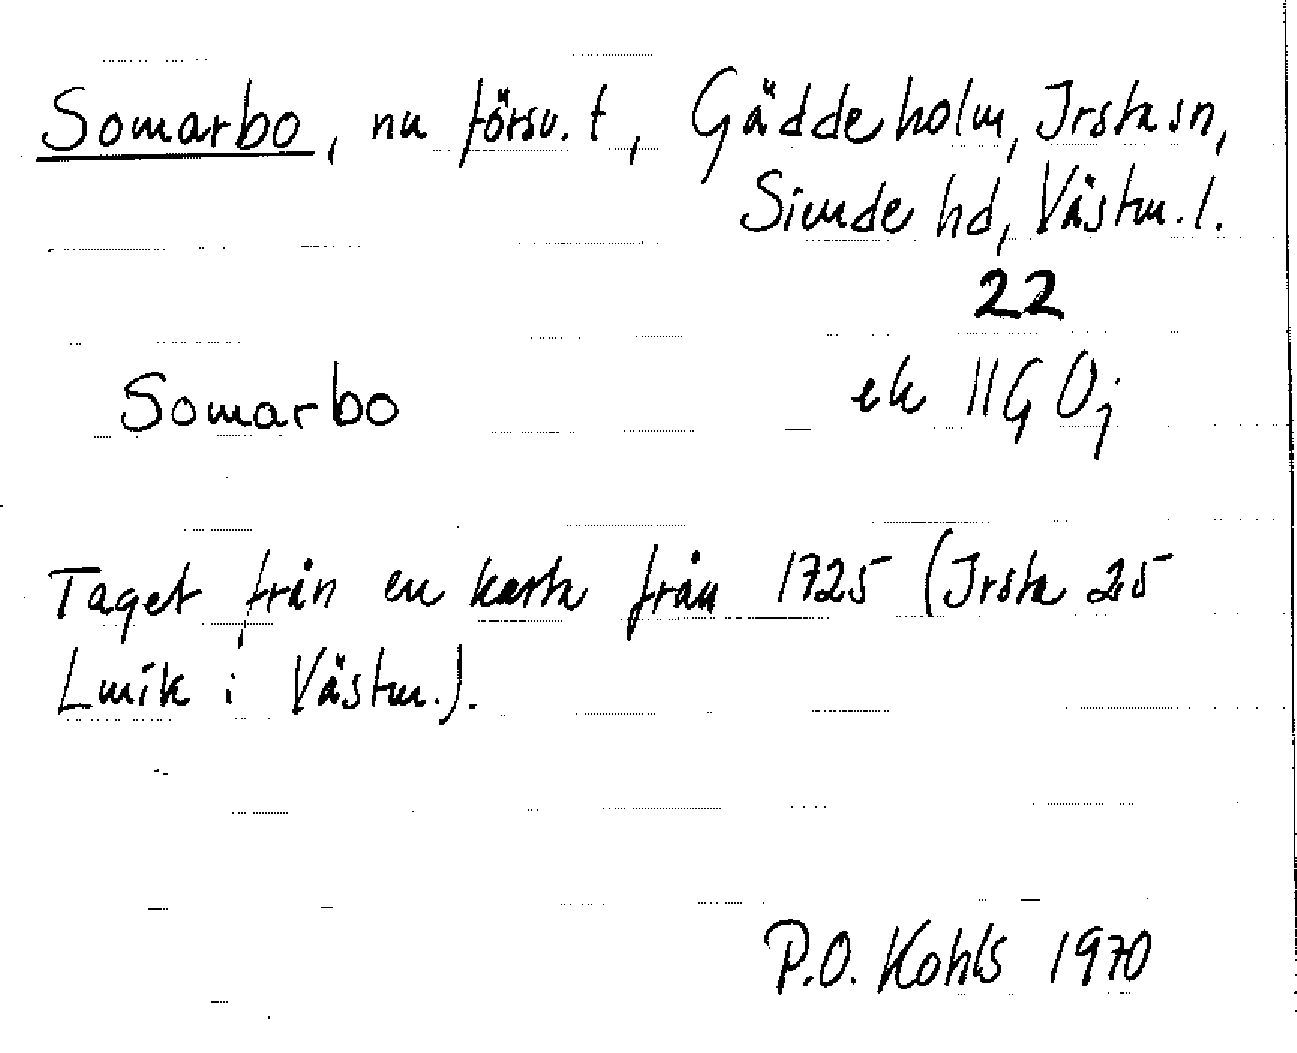 Somarbo, nu försv. t, Gäddeholm, Irsta sn,
Siende hd, Västm. l.
22
Somarbo ek 11G 0j
Taget från en karta från 1725 (Irsta 25
Lmfk i Västm.).
P.O. Kohls 1970